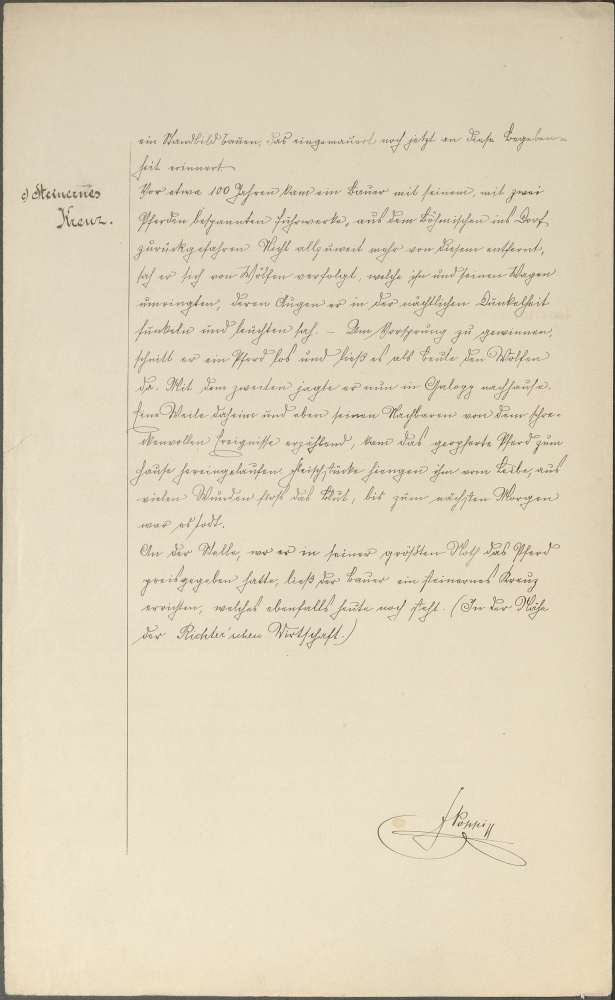 ein Standbild bauen, das eingemauert noch jetzt an diese Begeben-
heit erinnert.
c) Steinernes
Kreuz.
Vor etwa 100 Jahren kam ein Bauer mit seinem, mit zwei
Pferden bespannten Fuhrwerke, aus dem Böhmischen ins Dorf
zurückgefahren. Nicht allzuweit mehr von diesem entfernt,
sah er sich von Wölfen verfolgt, welche ihn und seinen Wagen
umringten, deren Augen er in der nächtlichen Dunkelheit
funkeln und leuchten sah. – Um Vorsprung zu gewinnen,
schnitt er ein Pferd los und ließ es als Beute den Wölfen
da. Mit dem zweiten jagte er nun in Galopp nachhause.
Eine Weile daheim und eben seinen Nachbaren von dem schre-
ckenvollen Ereignisse erzählend, kam das geopferte Pferd zum
Hause hereingelaufen. Fleischstücke hiengen ihm vom Leibe, aus
vielen Wunden floß das Blut, bis zum nächsten Morgen
war es todt.
An der Stelle, wo er in seiner größten Noth das Pferd
preisgegeben hatte, ließ der Bauer ein steinernes Kreuz
errichten, welches ebenfalls heute noch steht. (In der Nähe
der Richter'schen Wirtschaft.)